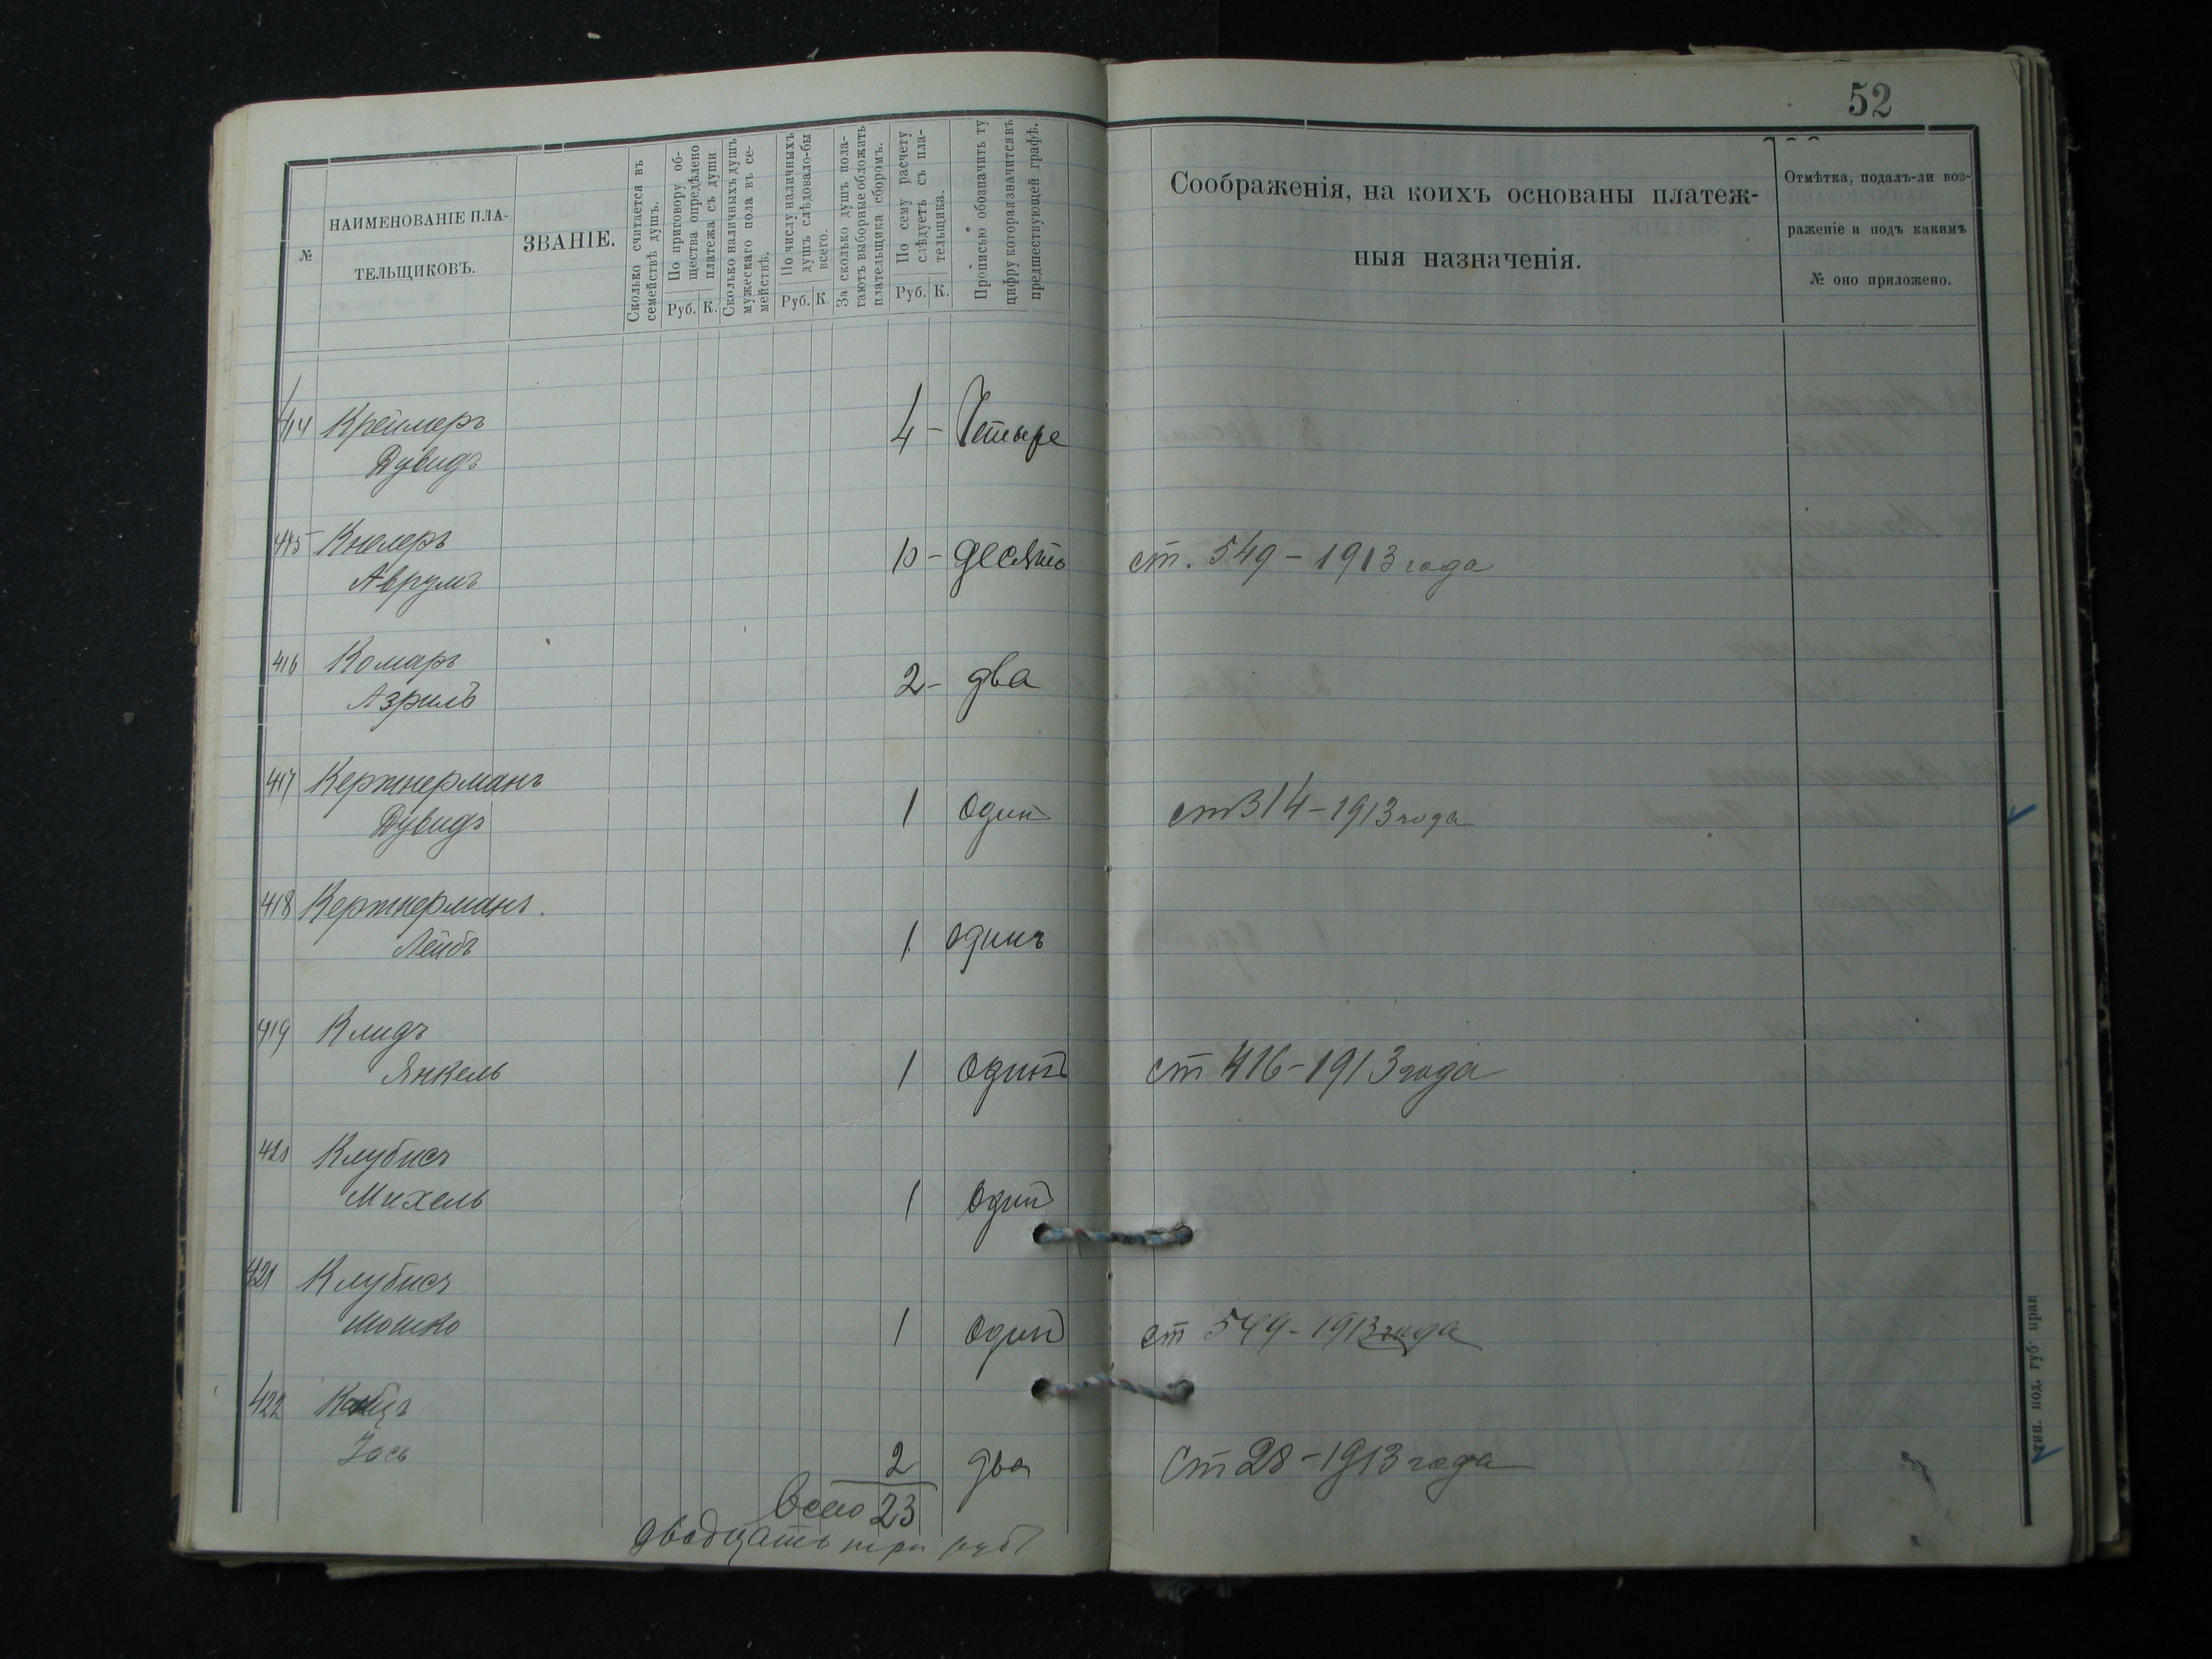 52
№
НАИМЕНОВАНІЕ ПЛА-
ТЕЛЬЩИКОВЪ.
ЗВАНІЕ.
Сколько считается въ
семействѣ душъ.
По приговору об-
щества опредѣлено
платежа съ души
Руб. К.
Сколько наличныхъ душъ
мужескаго пола въ се-
мействѣ.
По числу наличныхъ
душъ слѣдовало-бы
всего.
Руб. К.
За сколько душъ пола-
гаютъ выборные обложить
плательщика сборомъ.
По сему расчету
слѣдуетъ съ пла-
тельщика.
Руб. К.
Прописью обозначить ту
цифру которая значится въ
предшествующей графѣ.
Соображенія, на коихъ основаны платеж-
ныя назначенія.
Отмѣтка, подалъ-ли воз-
раженіе и подъ какимъ
№ оно приложено.
414 Креймеръ
Дувидъ 4 - Четыре
415 Кнелеръ
Аврумъ 10 - десять ст. 549 - 1913 года
416 Комаръ
Азриль 2 - два
417 Кержнерманъ
Дувидъ 1 один ст 314 - 1913 года
418 Кержнерманъ.
Лейбъ 1 одинъ
419 Клидъ
Янкель 1 одинъ ст 416 - 1913 года
420 Клубисъ
Михель 1 один
421 Клубисъ
Мошко 1 один ст 549 - 1913 года
422
Іось 2 два ст 28 - 1913 года
Всего 23
двадцать три руб
тип. под. губ. прав